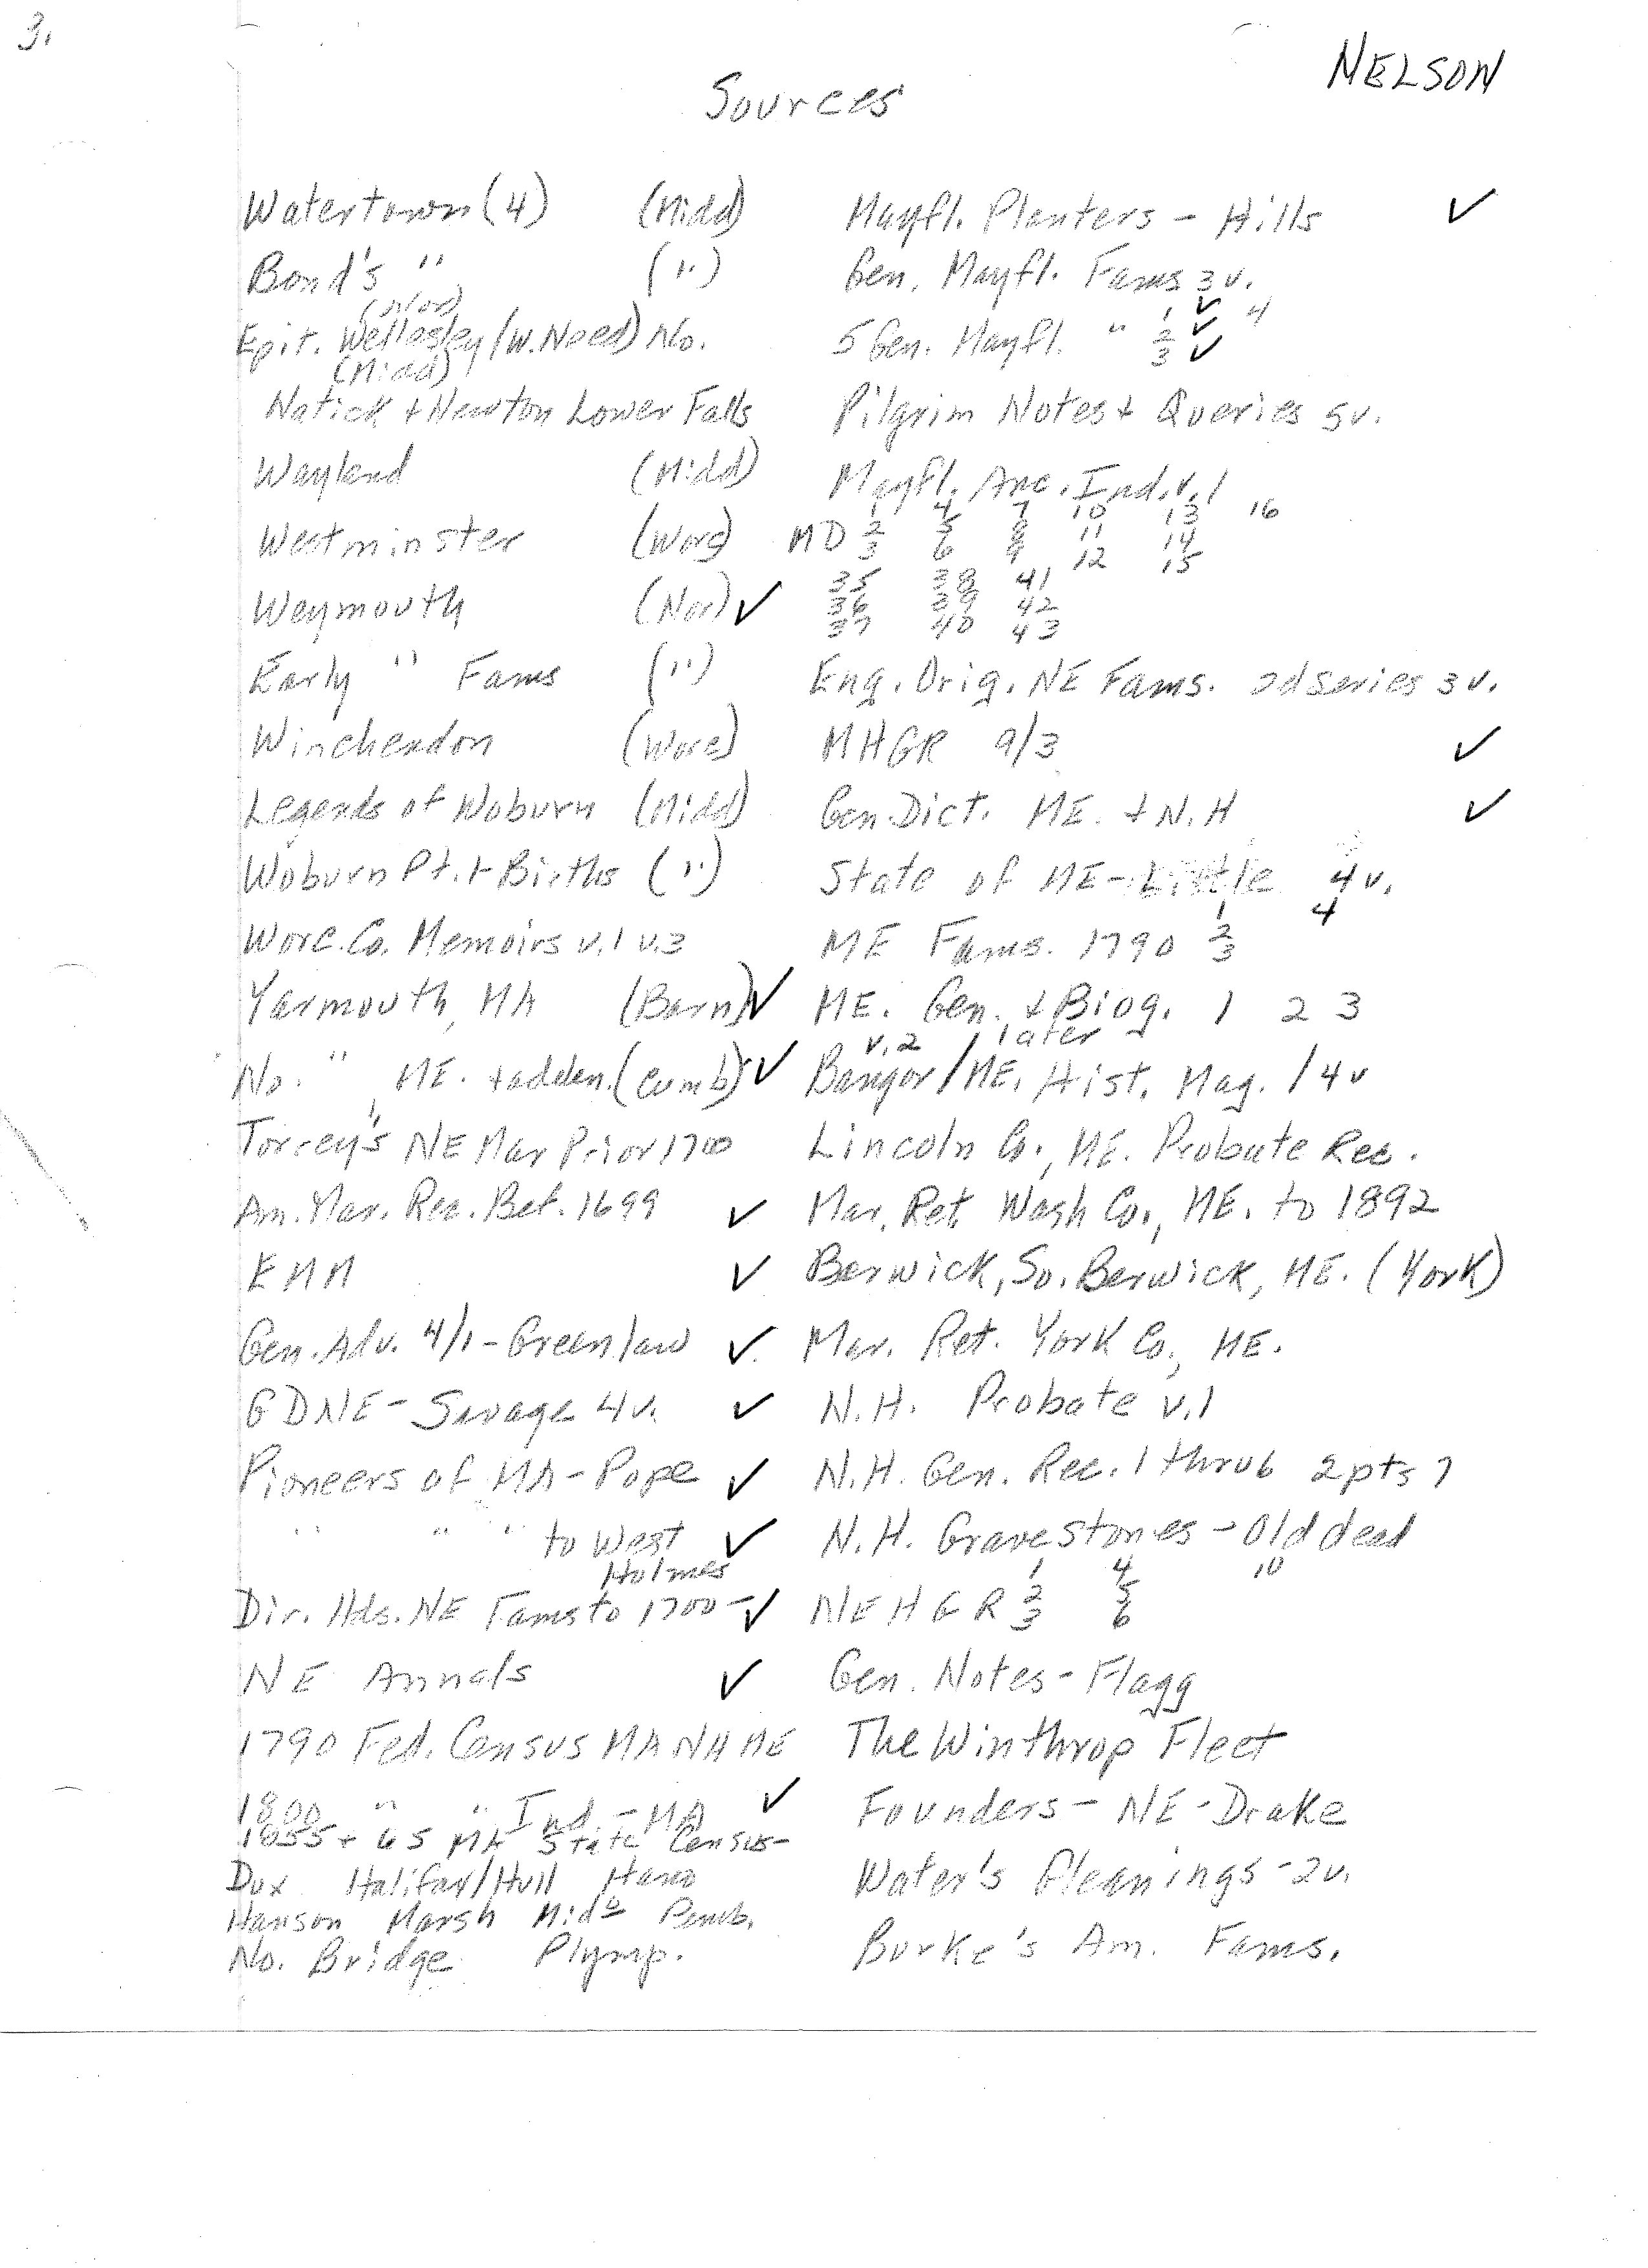 3.
NELSON
Sources
Watertown (4) (Midd)
Bond's " (")
(Nor)
Epit. Wellesley (W. Need) No.
(Midd)
Natick + Newton Lower Falls
Wayland (Midd)
Westminster (Worc)
Weymouth (Nor) ✓
Early " Fams (")
Winchendon (Worc)
Legends of Woburn (Midd)
Woburn Pt. 1 Births (")
Worc. Co. Memoirs v.1 v.3
Yarmouth, MA (Barn) ✓
No. " , ME. + adden. (Cumb) ✓
Torrey's NE Mar Prior 1700
Am. Mar. Rec. Bef. 1699 ✓
EMM ✓
Gen. Adv. 4/1 - Greenlaw ✓
GDNE - Savage 4v. ✓
Pioneers of MA - Pope ✓
" " " to West ✓
Holmes
Dir. Hds. NE Fams to 1700 - ✓
NE Annals ✓
1790 Fed. Census MA NH ME
1800 " " Ind. - MA ✓
1855 + 65 MA State Census -
Dux Halifax/Hull Hano
Hanson Marsh Mido Pemb.
No. Bridge Plymp.
Mayfl. Planters - Hills ✓
Gen. Mayfl. Fams 3v.
5 Gen. Mayfl. " 1 ✓ 2 ✓ 3 ✓ 4
Pilgrim Notes + Queries 5v.
Mayfl. Anc. Ind. v.1
1 4 7 10 13 16
MD 2 5 8 11 14
3 6 9 12 15
35 38 41
36 39 42
37 40 43
Eng. Orig. NE Fams. 2d series 3v.
MHGR 9/3 ✓
Gen. Dict. ME. + N.H ✓
State of ME - Little 4v.
ME Fams. 1790 1 2 3 4
ME. Gen. + Biog. 1 2 3
v.2 / later
Bangor/ME. Hist. Mag. / 4v
Lincoln Co., ME. Probate Rec.
Mar. Ret. Wash Co., ME. to 1892
Berwick, So. Berwick, ME. (York)
Mar. Ret. York Co., ME.
N.H. Probate v.1
N.H. Gen. Rec. 1 thru 6 2 pts 7
N.H. Grave Stones - Old dead
1 4 10
NEHGR 2 5
3 6
Gen. Notes - Flagg
The Winthrop Fleet
Founders - NE - Drake
Water's Gleanings - 2v.
Burke's Am. Fams.